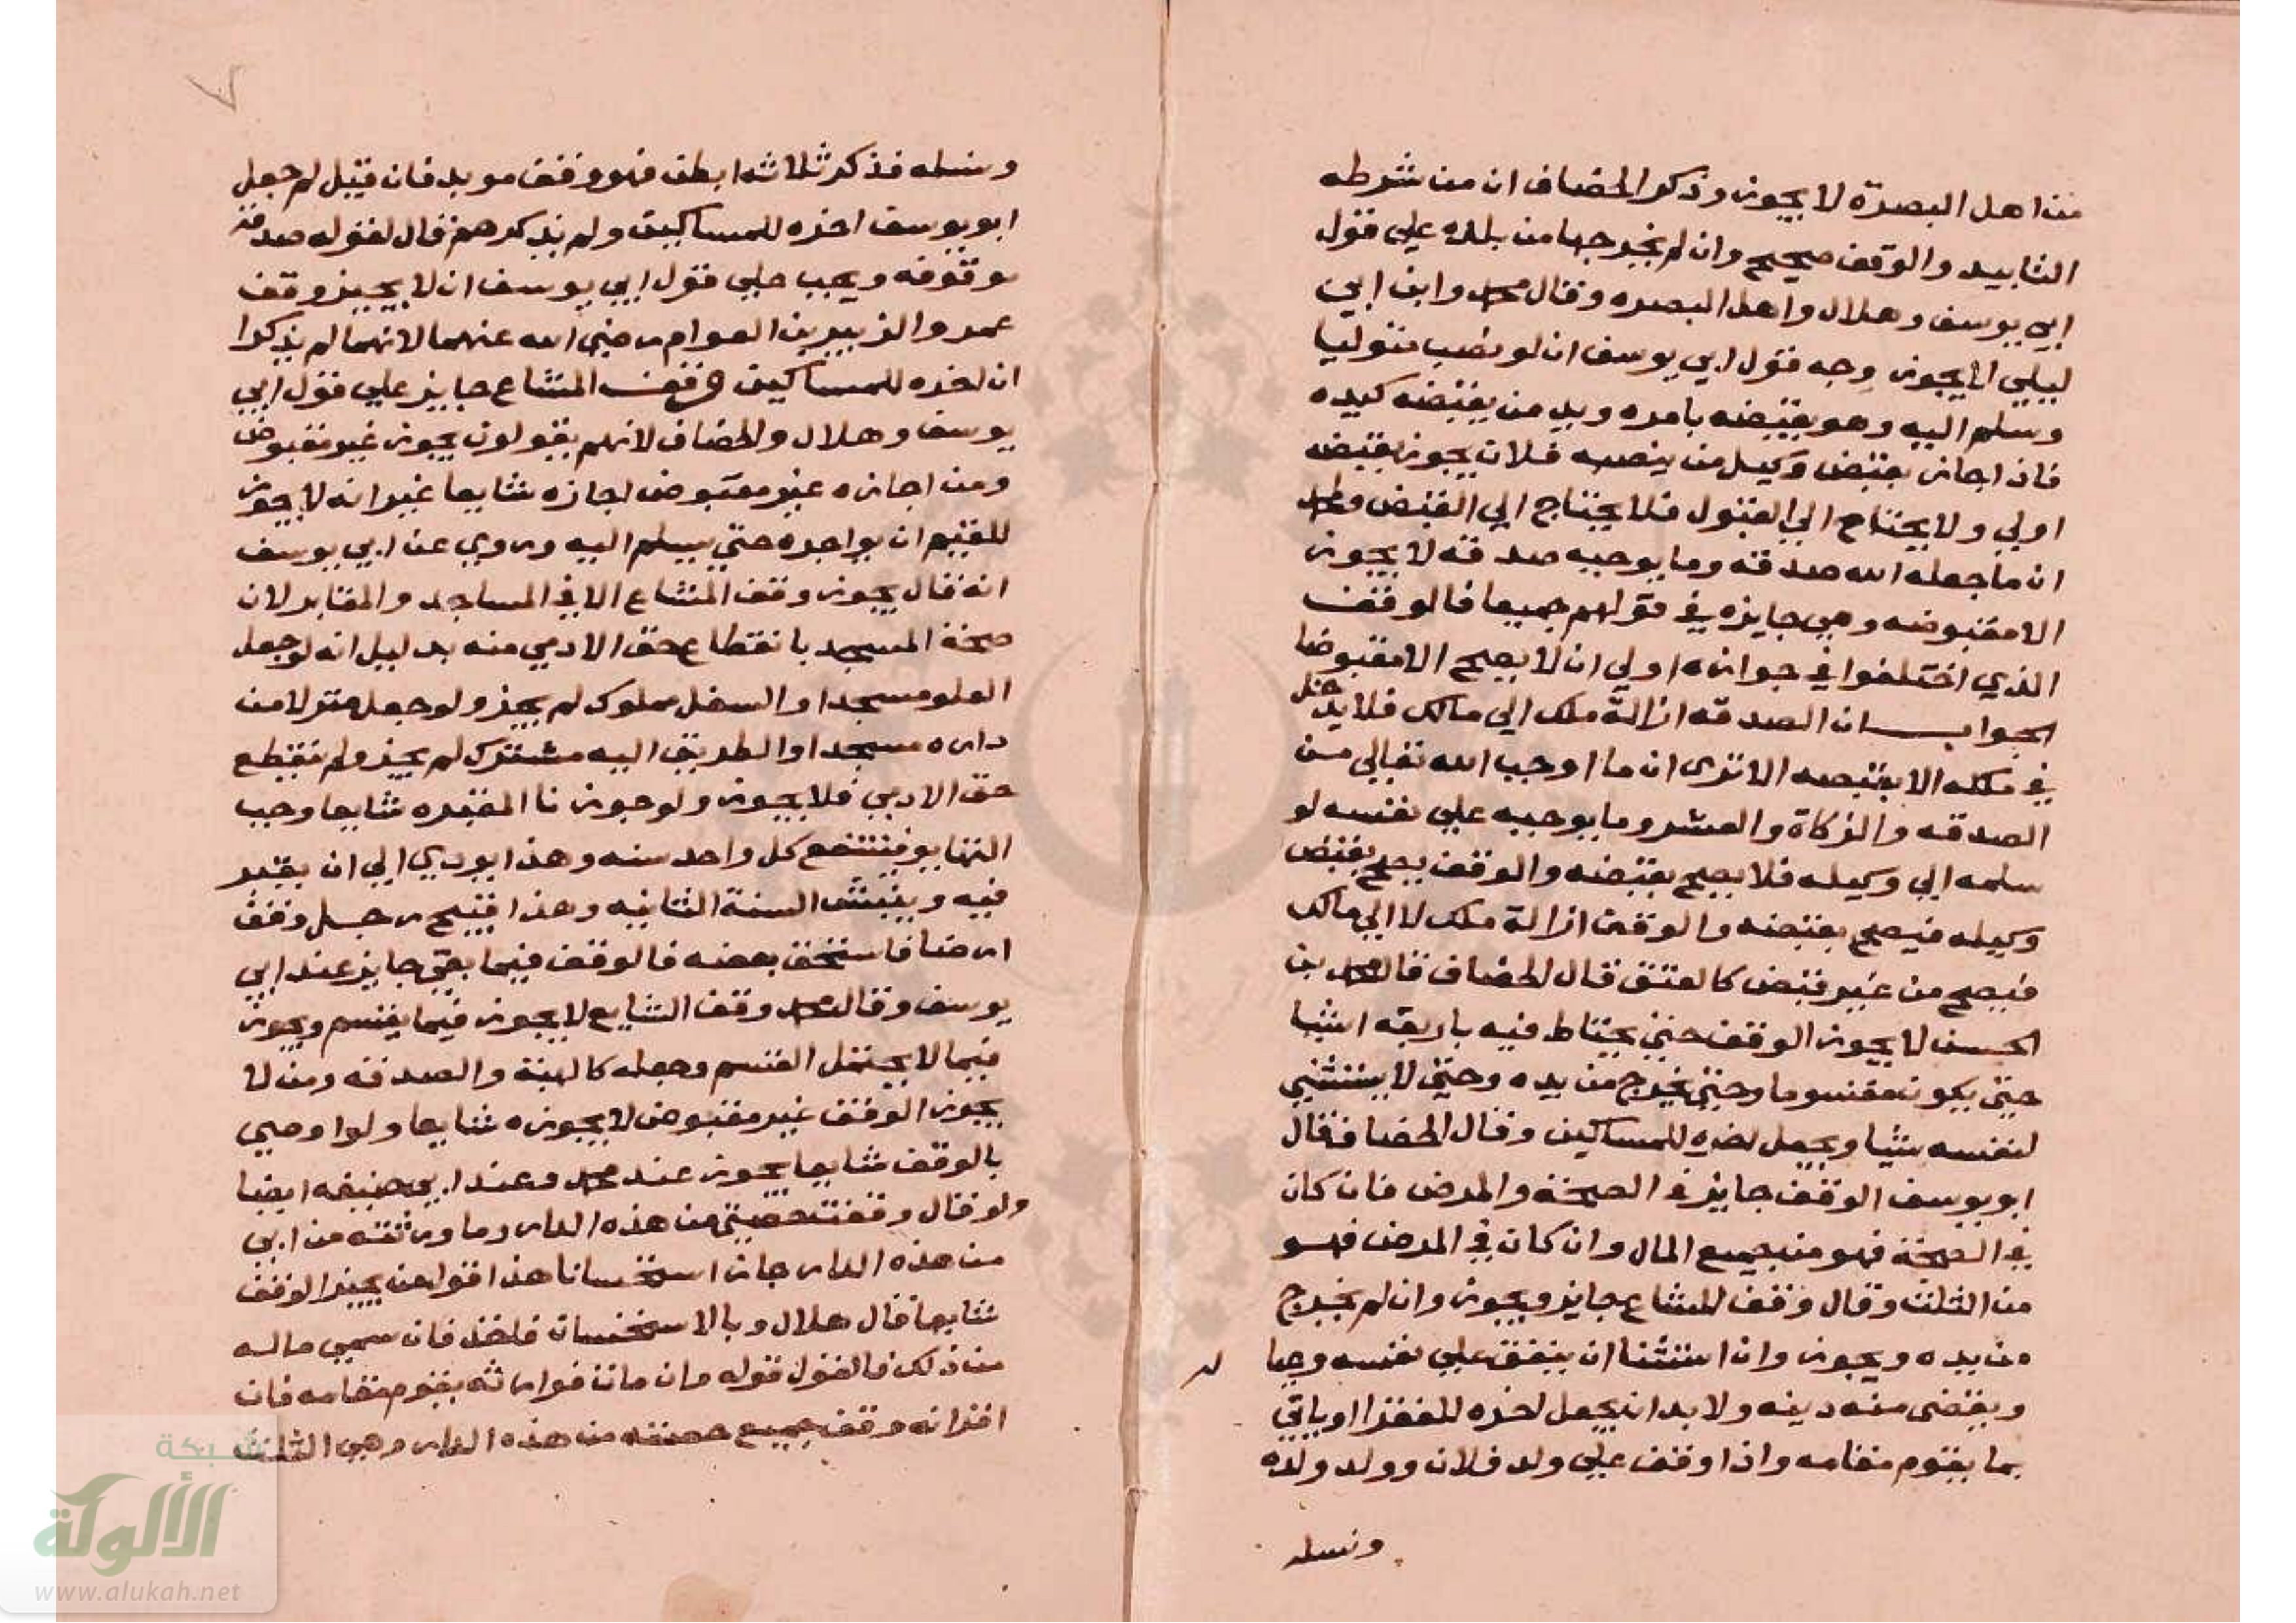 من اهل البصرة لا يجوز وذكر الخصاف ان من شرطه
التابيد والوقف صحيح وان لم يخرجها من يده علي قول
ابي يوسف وهلال واهل البصره وقال محمد وابن ابي
ليلي لا يجوز وجه قول ابي يوسف ان لو نصب متوليا
وسلم اليه وهو يقبضه بامره ويد من يقبضه كيده
فاذا جاز بقبض وكيل من ينصبه فلان يجوز بقبضه
اولي ولا يحتاج الي القبول فلا يحتاج الي القبض ولمحمد
ان ما جعله الله صدقة وما يوجبه صدقه لا يجوز
الا مقبوضه وهي جايزه في قولهم جميعا فالوقف
الذي اختلفوا في جوازه اولي ان لا يصح الا مقبوضا
الجواب ان الصدقه ازالة ملك الي مالك فلا يدخل
في ملكه الا بقبضه الا تري ان ما اوجب الله تعالي من
الصدقه والزكاة والعشر وما يوجبه علي نفسه لو
سلمه الي وكيله فلا يصح بقبضه والوقف يصح بقبض
وكيله فيصح بقبضه والوقف ازالة ملك لا الي مالك
فيصح من غير قبض كالعتق قال الخصاف قال محمد بن
الحسن لا يجوز الوقف حتي يحتاط فيه باربعه اشيا
حتي يكون مقسوما وحتي يخرج من يده وحتي لا يستثني
لنفسه شيا ويجعل اخره للمساكين وقال الخصاف قال
ابو يوسف الوقف جايز في الصحة والمرض فان كان
في الصحة فهو من جميع المال وان كان في المرض فهو
من الثلث وقال وقف المشاع جايز ويجوز وان لم يخرج
من يده ويجوز وان استثنا ان ينفق علي نفسه وحيا
ويقضي منه دينه ولا بد ان يجعل اخره للفقرا او ياتي
بما يقوم مقامه واذا وقف علي ولد فلان وولد ولده
ونسله
٧
ونسله فذكر ثلاثه ابطن فهو وقف موبد فان قيل لم جعل
ابو يوسف اخره للمساكين ولم يذكرهم قال لقوله صدقه
موقوفه ويجب علي قول ابي يوسف ان لا يجيز وقف
عمر والزبير بن العوام رضي الله عنهما لانهما لم يذكرا
ان اخره للمساكين وقف المشاع جايز علي قول ابي
يوسف وهلال والخصاف لانهم يقولون يجوز غير مقبوض
ومن اجازه غير مقبوض اجازه شايعا غير انه لا يجوز
للقيم ان يواجره حتي يسلم اليه وروي عن ابي يوسف
انه قال يجوز وقف المشاع الا في المساجد والمقابر لان
صحة المسجد بانقطاع حق الادمي منه بدليل انه لو جعل
العلو مسجدا والسفل مملوك لم يجز ولو جعل منزلا من
داره مسجدا والطريق اليه مشترك لم يجز ولم تنقطع
حق الادمي فلا يجوز ولو جوزنا المقبره شايعا وجب
التهايو فينتفع كل واحد سنه وهذا يودي الي ان يقبر
فيه وينبش السنة الثانيه وهذا قبيح رجل وقف
ارضا فاستحق بعضه فالوقف فيما بقي جايز عند ابي
يوسف وقال محمد وقف الشايع لا يجوز فيما يقسم ويجوز
فيما لا يحتمل القسم وجعله كالهبة والصدقه ومن لا
يجوز الوقف غير مقبوض لا يجوزه شايعا ولو اوصي
بالوقف شايعا يجوز عند محمد وعند ابي حنيفه ايضا
ولو قال وقفت حصتي من هذه الدار وما ورثته من ابي
من هذه الدار جاز استحسانا هذا قول من يجيز الوقف
شايعا قال هلال وبالاستحسان فاخذ فان سمي ماله
من ذلك فالقول قوله وان مات فوارثه يقوم مقامه فان
اقر انه وقف جميع حصته من هذه الدار وهي الثلث
شبكة
الألوكة
www.alukah.net